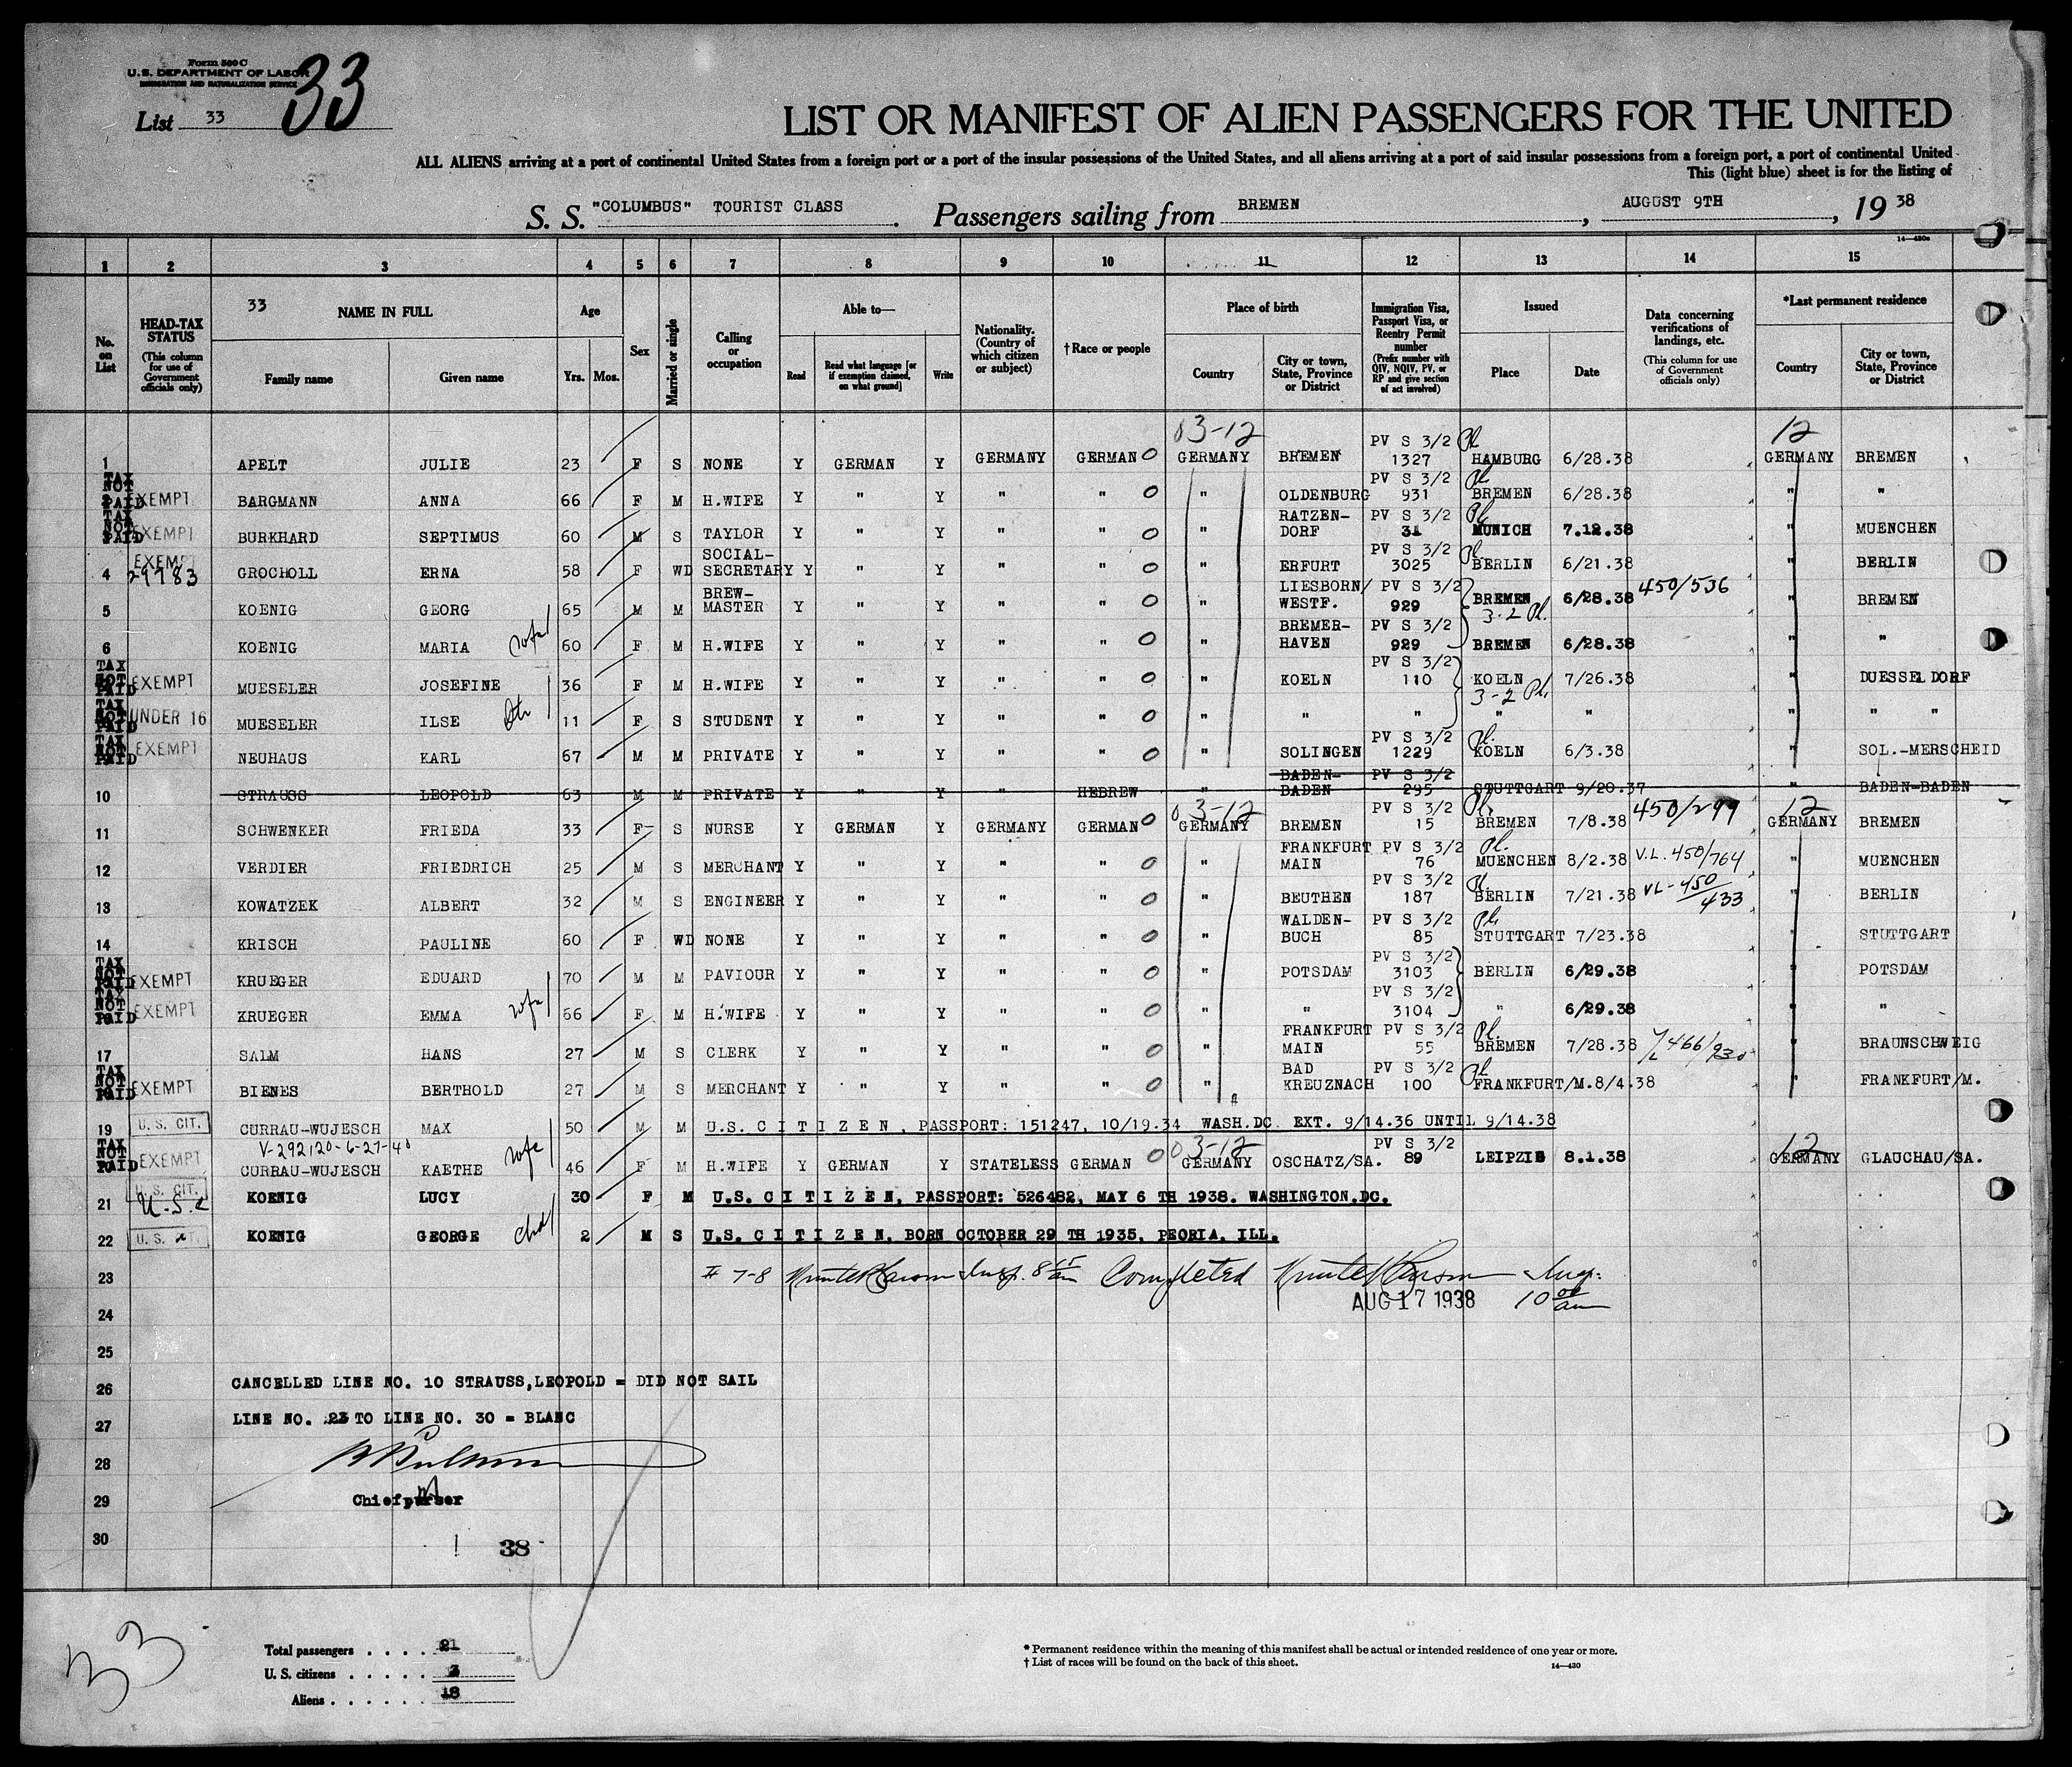 Form 500 C
U.S. DEPARTMENT OF LABOR
IMMIGRATION AND NATURALIZATION SERVICE
List 33 33
LIST OR MANIFEST OF ALIEN PASSENGERS FOR THE UNITED
ALL ALIENS arriving at a port of continental United States from a foreign port or a port of the insular possessions of the United States, and all aliens arriving at a port of said insular possessions from a foreign port, a port of continental United
This (light blue) sheet is for the listing of
S. S. "COLUMBUS" TOURIST CLASS . Passengers sailing from BREMEN , AUGUST 9TH , 19 38
14—430
1 2 3 4 5 6 7 8 9 10 11 12 13 14 15
No. on List
HEAD-TAX STATUS (This column for use of Government officials only)
33 NAME IN FULL
Family name Given name
Age Yrs. Mos.
Sex
Married or single
Calling or occupation
Able to—
Read Read what language [or if exemption claimed, on what ground] Write
Nationality. (Country of which citizen or subject)
† Race or people
Place of birth
Country City or town, State, Province or District
Immigration Visa, Passport Visa, or Reentry Permit number (Prefix number with QIV, NQIV, PV, or RP and give section of act involved)
Issued
Place Date
Data concerning verifications of landings, etc. (This column for use of Government officials only)
*Last permanent residence
Country City or town, State, Province or District
03-12 12
1 APELT JULIE 23 F S NONE Y GERMAN Y GERMANY GERMAN O GERMANY BREMEN PV S 3/2 1327 Pl. HAMBURG 6/28.38 GERMANY BREMEN
TAX NOT PAID 2 EXEMPT BARGMANN ANNA 66 F M H.WIFE Y " Y " " O " OLDENBURG PV S 3/2 931 Pl. BREMEN 6/28.38 " "
TAX NOT PAID 3 EXEMPT BURKHARD SEPTIMUS 60 M S TAYLOR Y " Y " " O " RATZEN-DORF PV S 3/2 31 Pl. MUNICH 7.12.38 " MUENCHEN
4 EXEMPT 29783 GROCHOLL ERNA 58 F WD SOCIAL-SECRETARY Y " Y " " O " ERFURT PV S 3/2 3025 Pl. BERLIN 6/21.38 " BERLIN
5 KOENIG GEORG 65 M M BREW-MASTER Y " Y " " O " LIESBORN/WESTF. PV S 3/2 929 BREMEN 6/28.38 450/536 " BREMEN
3-2 Pl.
6 KOENIG MARIA wfe 60 F M H.WIFE Y " Y " " O " BREMER-HAVEN PV S 3/2 929 BREMEN 6/28.38 " "
TAX NOT PAID EXEMPT MUESELER JOSEFINE 36 F M H.WIFE Y " Y " " O " KOELN PV S 3/2 110 KOELN 7/26.38 " DUESSELDORF
3-2 Pl.
TAX NOT PAID UNDER 16 MUESELER ILSE Dtr 11 F S STUDENT Y " Y " " O " " " " " " " "
TAX NOT PAID EXEMPT NEUHAUS KARL 67 M M PRIVATE Y " Y " " O " SOLINGEN PV S 3/2 1229 Pl. KOELN 6/3.38 " SOL.-MERSCHEID
10 STRAUSS LEOPOLD 63 M M PRIVATE Y " Y " HEBREW " BADEN-BADEN PV S 3/2 295 STUTTGART 9/20.37 " BADEN-BADEN
03-12 12
11 SCHWENKER FRIEDA 33 F S NURSE Y GERMAN Y GERMANY GERMAN O GERMANY BREMEN PV S 3/2 15 Pl. BREMEN 7/8.38 450/299 GERMANY BREMEN
12 VERDIER FRIEDRICH 25 M S MERCHANT Y " Y " " O " FRANKFURT MAIN PV S 3/2 76 Pl. MUENCHEN 8/2.38 V.L. 450/764 " MUENCHEN
13 KOWATZEK ALBERT 32 M S ENGINEER Y " Y " " O " BEUTHEN PV S 3/2 187 Pl. BERLIN 7/21.38 VL-450/433 " BERLIN
14 KRISCH PAULINE 60 F WD NONE Y " Y " " O " WALDEN-BUCH PV S 3/2 85 Pl. STUTTGART 7/23.38 " STUTTGART
TAX NOT PAID EXEMPT KRUEGER EDUARD 70 M M PAVIOUR Y " Y " " O " POTSDAM PV S 3/2 3103 BERLIN 6/29.38 " POTSDAM
TAX NOT PAID EXEMPT KRUEGER EMMA wfe 66 F M H.WIFE Y " Y " " O " " PV S 3/2 3104 " 6/29.38 " "
17 SALM HANS 27 M S CLERK Y " Y " " O " FRANKFURT MAIN PV S 3/2 55 Pl. BREMEN 7/28.38 466/930 " BRAUNSCHWEIG
TAX NOT PAID EXEMPT BIENES BERTHOLD 27 M S MERCHANT Y " Y " " O " BAD KREUZNACH PV S 3/2 100 Pl. FRANKFURT/M. 8/4.38 " FRANKFURT/M.
19 U.S. CIT. CURRAU-WUJESCH MAX 50 M M U.S. C I T I Z E N , PASSPORT: 151247, 10/19.34 WASH.DC. EXT. 9/14.36 UNTIL 9/14.38
V-292120-6-27-40 03-12 12
TAX NOT PAID EXEMPT CURRAU-WUJESCH KAETHE wfe 46 F M H.WIFE Y GERMAN Y STATELESS GERMAN O GERMANY OSCHATZ/SA. PV S 3/2 89 LEIPZIG 8.1.38 GERMANY GLAUCHAU/SA.
21 U.S. CIT. U.S.C KOENIG LUCY 30 F M U.S. C I T I Z E N, PASSPORT: 526482, MAY 6 TH 1938. WASHINGTON.DC.
22 U.S. CIT. KOENIG GEORGE chd 2 M S U.S. C I T I Z E N, BORN OCTOBER 29 TH 1935, PEORIA, ILL.
23 # 7-8 Insp. 8 15 am Completed Insp.
24 AUG 17 1938 10 00 am
25
26 CANCELLED LINE NO. 10 STRAUSS,LEOPOLD = DID NOT SAIL
27 LINE NO. 23 TO LINE NO. 30 = BLANC
28
29 Chiefpurser
30
38
33
Total passengers . . . . 21
U. S. citizens . . . . . 3
Aliens . . . . . . 18
* Permanent residence within the meaning of this manifest shall be actual or intended residence of one year or more.
† List of races will be found on the back of this sheet.
14—430